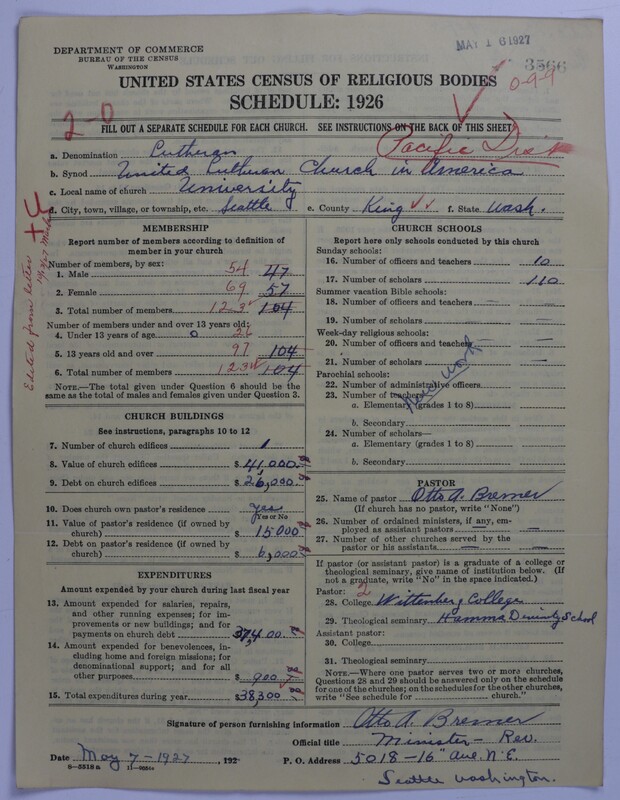 MAY 16 1927
DEPARTMENT OF COMMERCE
BUREAU OF THE CENSUS
WASHINGTON
3566
0-9-9
UNITED STATES CENSUS OF RELIGIOUS BODIES
SCHEDULE: 1926
2-0
FILL OUT A SEPARATE SCHEDULE FOR EACH CHURCH. SEE INSTRUCTIONS ON THE BACK OF THIS SHEET
Pacific Dist
a. Denomination Lutheran
b. Synod United Lutheran Church in America
c. Local name of church University
d. City, town, village, or township, etc. Seattle e. County King f. State Wash.
Edited from letter
MEMBERSHIP
Report number of members according to definition of
member in your church
Number of members, by sex:
1. Male 54 47
2. Female 69 57
3. Total number of members 123 104
Number of members under and over 13 years old:
4. Under 13 years of age 0 26
5. 13 years old and over 97 104
6. Total number of members 123 104
NOTE.—The total given under Question 6 should be the
same as the total of males and females given under Question 3.
CHURCH BUILDINGS
See instructions, paragraphs 10 to 12
7. Number of church edifices 1
8. Value of church edifices $ 41,000.
9. Debt on church edifices $ 26,000.
10. Does church own pastor's residence yes
Yes or No
11. Value of pastor's residence (if owned by
church) $ 15000
12. Debt on pastor's residence (if owned by
church) $ 6,000
EXPENDITURES
Amount expended by your church during last fiscal year
13. Amount expended for salaries, repairs,
and other running expenses; for im-
provements or new buildings; and for
payments on church debt 37400.
14. Amount expended for benevolences, in-
cluding home and foreign missions; for
denominational support; and for all
other purposes $ 900
15. Total expenditures during year $38300
CHURCH SCHOOLS
Report here only schools conducted by this church
Sunday schools:
16. Number of officers and teachers 10
17. Number of scholars 110
Summer vacation Bible schools:
18. Number of officers and teachers —
19. Number of scholars —
Week-day religious schools:
20. Number of officers and teachers —
21. Number of scholars —
Parochial schools:
22. Number of administrative officers
23. Number of teachers—
a. Elementary (grades 1 to 8)
b. Secondary
24. Number of scholars—
a. Elementary (grades 1 to 8)
b. Secondary
PASTOR
25. Name of pastor Otto A. Bremer
(If church has no pastor, write "None")
26. Number of ordained ministers, if any, em-
ployed as assistant pastors —
27. Number of other churches served by the
pastor or his assistants —
If pastor (or assistant pastor) is a graduate of a college or
theological seminary, give name of institution below. (If
not a graduate, write "No" in the space indicated.)
Pastor: 2
28. College Wittenberg College
29. Theological seminary Hamma Divinity School
Assistant pastor:
30. College
31. Theological seminary
NOTE.—Where one pastor serves two or more churches,
Questions 28 and 29 should be answered only on the schedule
for one of the churches; on the schedules for the other churches,
write "See schedule for ........ church."
Signature of person furnishing information Otto A. Bremer
Official title Minister – Rev.
Date May 7 – 1927 , 192 P. O. Address 5018 – 16" Ave. N.E.
8—5518 a
Seattle Washington.